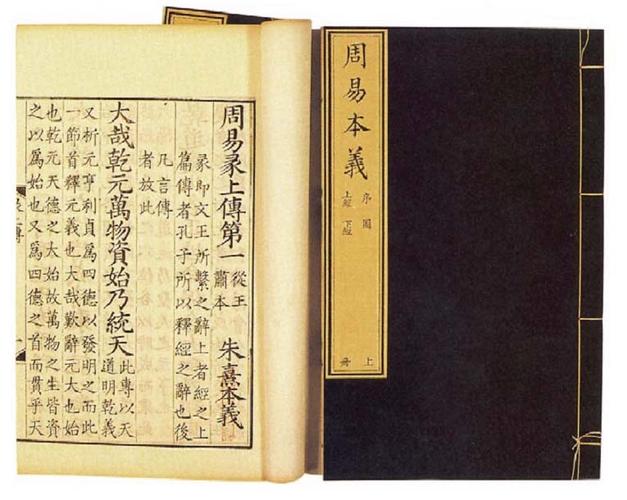 周易彖上傳第一
從王
肅本
朱熹本義
彖即文王所繫之辭上者經之上
篇傳者孔子所以釋經之辭也後
凡言傳
者放此
大哉乾元萬物資始乃統天
此專以天
道明乾義
又析元亨利貞爲四德以發明之而此
一節首釋元義也大哉歎辭元大也始
也乾元天德之大始故萬物之生皆資
之以爲始也又爲四德之首而貫乎天
周易本義
序 圖
上經 下經
上
冊